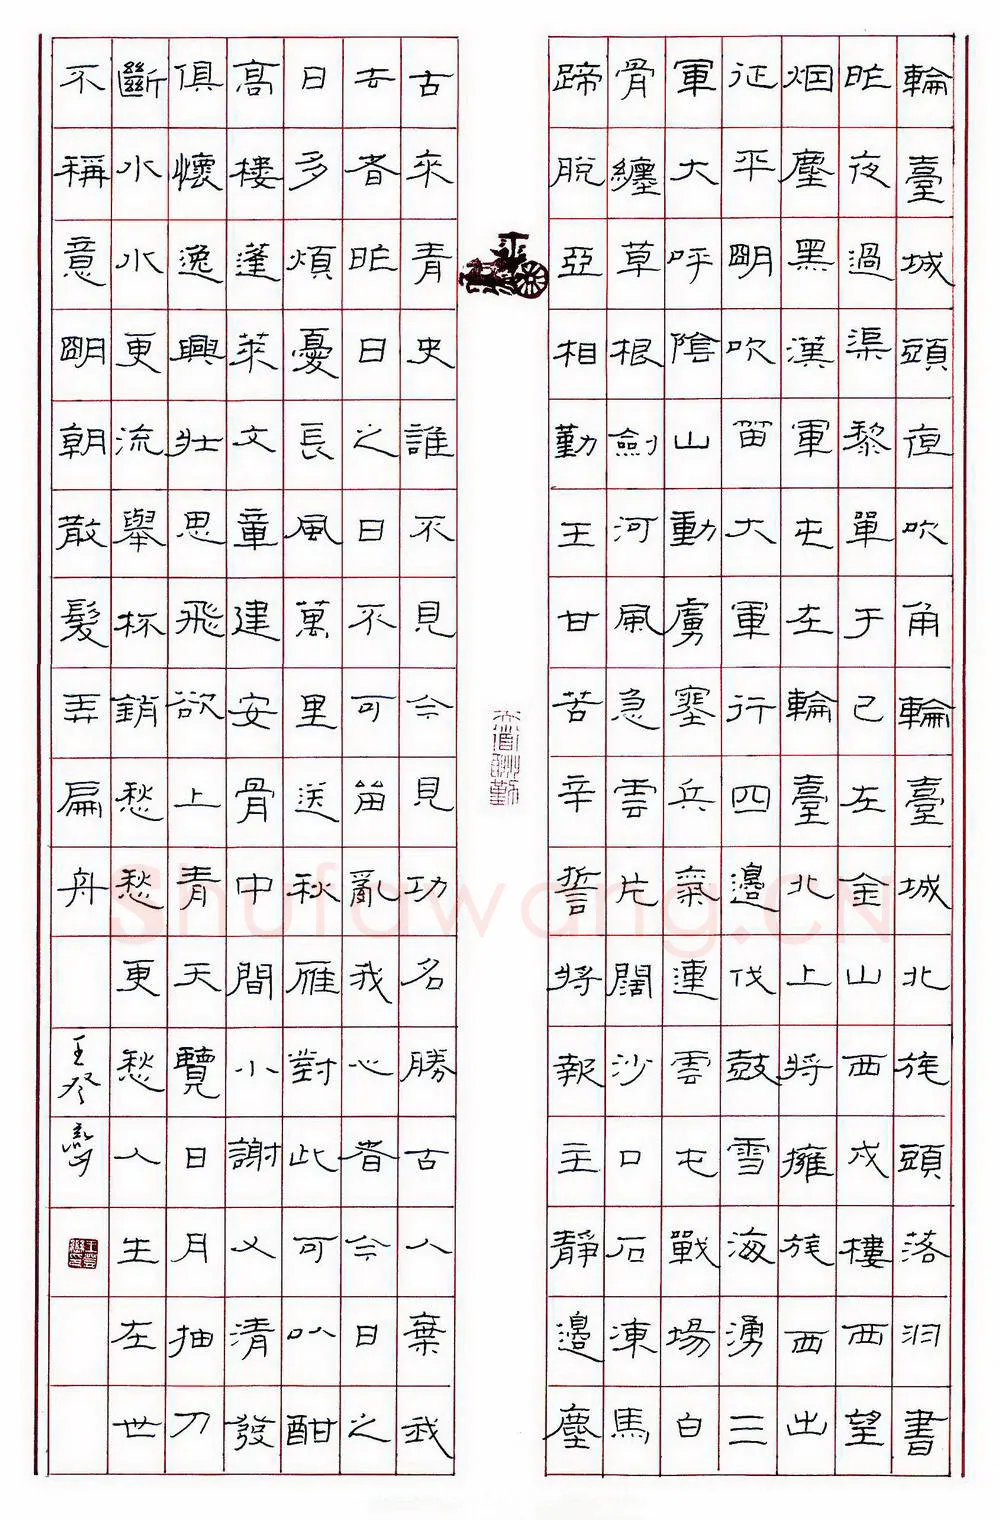 輪臺城頭夜吹角輪臺城北旄頭落羽書
昨夜過渠黎單于已在金山西戍樓西望
烟塵黑漢軍屯在輪臺北上將擁旄西出
征平明吹笛大軍行四邊伐鼓雪海湧三
軍大呼陰山動虜塞兵氣連雲屯戰場白
骨纏草根劍河風急雲片闊沙口石凍馬
蹄脫亞相勤王甘苦辛誓將報主靜邊塵
天道酬勤
古來青史誰不見今見功名勝古人棄我
去者昨日之日不可留亂我心者今日之
日多煩憂長風萬里送秋雁對此可以酣
高樓蓬萊文章建安骨中間小謝又清發
俱懷逸興壯思飛欲上青天覽日月抽刀
斷水水更流舉杯銷愁愁更愁人生在世
不稱意明朝散髮弄扁舟
王登
Shufawang.CN